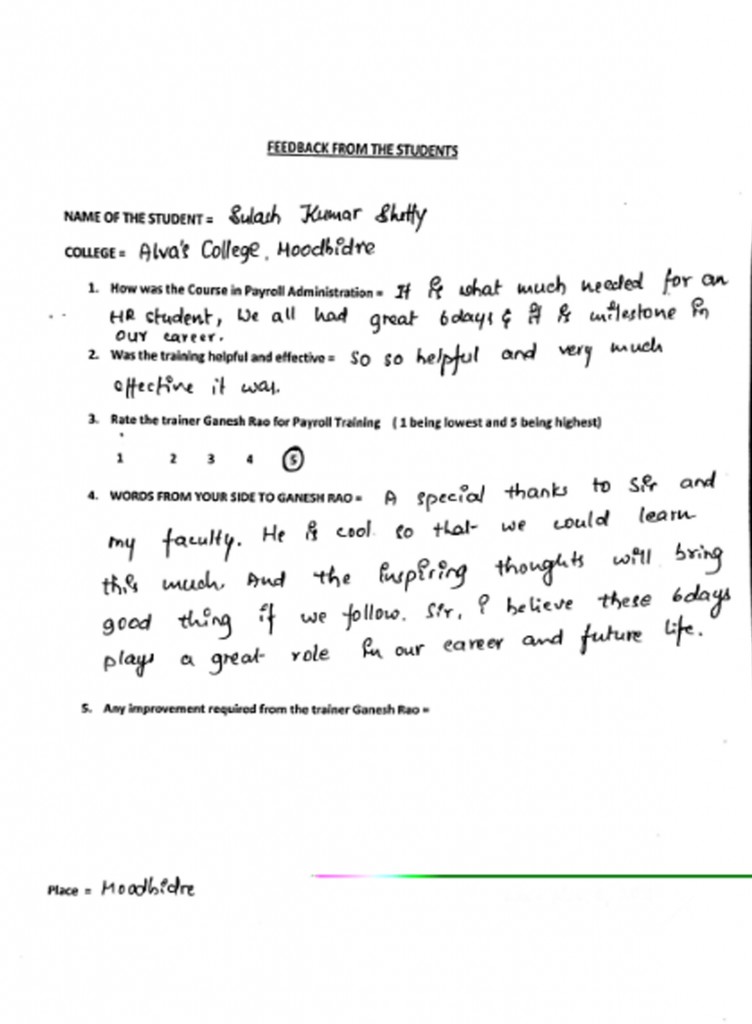 FEEDBACK FROM THE STUDENTS
NAME OF THE STUDENT = Sulash Kumar Shetty
COLLEGE = Alva's College, Moodbidre
1. How was the Course in Payroll Administration = It is what much needed for an
HR student, We all had great 6days & it is milestone in
our career.
2. Was the training helpful and effective = So so helpful and very much
effective it was.
3. Rate the trainer Ganesh Rao for Payroll Training (1 being lowest and 5 being highest)
1 2 3 4 5
4. WORDS FROM YOUR SIDE TO GANESH RAO = A special thanks to Sir and
my faculty. He is cool so that we could learn
this much. And the inspiring thoughts will bring
good thing if we follow. Sir, I believe these 6days
plays a great role in our career and future life.
5. Any improvement required from the trainer Ganesh Rao =
Place = Moodbidre